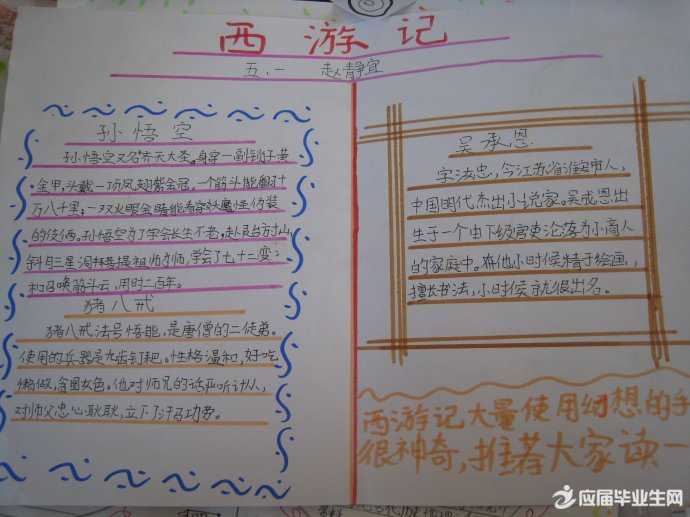 西游记
五.一 赵静宜
孙悟空
孙悟空又名齐天大圣。身穿一副锁子黄
金甲,头戴一顶凤翅紫金冠,一个筋斗能翻十
万八千里;一双火眼金睛能看穿妖魔怪伪装
的伎俩。孙悟空为了学会长生不老,赴灵台方寸山
斜月三星洞拜菩提祖师为师,学会了七十二变
和召唤筋斗云,用时二百年。
猪八戒
猪八戒法号悟能,是唐僧的二徒弟。
使用的兵器是九齿钉耙。性格温和,好吃
懒做,贪图女色。他对师兄的话言听计从,
对师父忠心耿耿,立下了汗马功劳。
吴承恩
字汝忠,今江苏省淮安市人,
中国明代杰出小说家。吴成恩出
生于一个由下级官吏沦落为小商人
的家庭中。在他小时候精于绘画,
擅长书法,小时候就很出名。
西游记大量使用幻想的手
很神奇,推荐大家读一
应届毕业生网